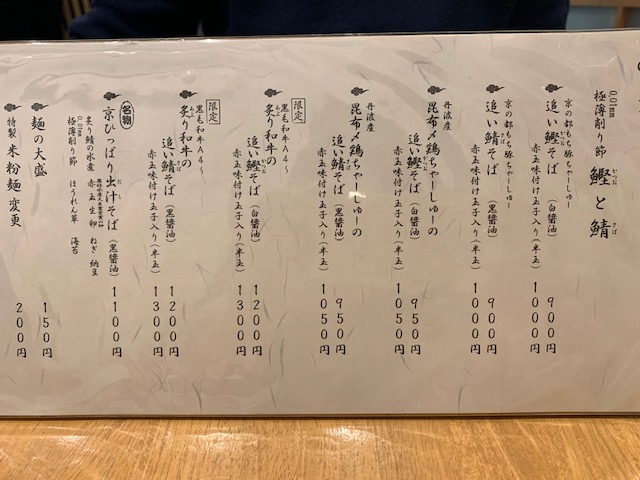 0.01㎜
極薄削り節 鰹と鯖
かつお
さば
京の都もち豚ちゃーしゅー
追い鰹そば(白醤油) 900円
赤玉味付け玉子入り(半玉) 1000円
京の都もち豚ちゃーしゅー
追い鯖そば(黒醤油) 900円
赤玉味付け玉子入り(半玉) 1000円
丹波産
昆布〆鶏ちゃーしゅーの
追い鰹そば(白醤油) 950円
赤玉味付け玉子入り(半玉) 1050円
丹波産
昆布〆鶏ちゃーしゅーの
追い鯖そば(黒醤油) 950円
赤玉味付け玉子入り(半玉) 1050円
限定
黒毛和牛A4〜
炙り和牛の
追い鰹そば(白醤油) 1200円
赤玉味付け玉子入り(半玉) 1300円
限定
黒毛和牛A4〜
炙り和牛の
追い鯖そば(黒醤油) 1200円
赤玉味付け玉子入り(半玉) 1300円
名物
京ひっぱり出汁そば(黒醤油) 1100円
炙り鯖の水煮 赤玉生卵 ねぎ 納豆
0.01㎜
極薄削り節 ほうれん草 海苔
麺の大盛 150円
特製 米粉麺変更 200円